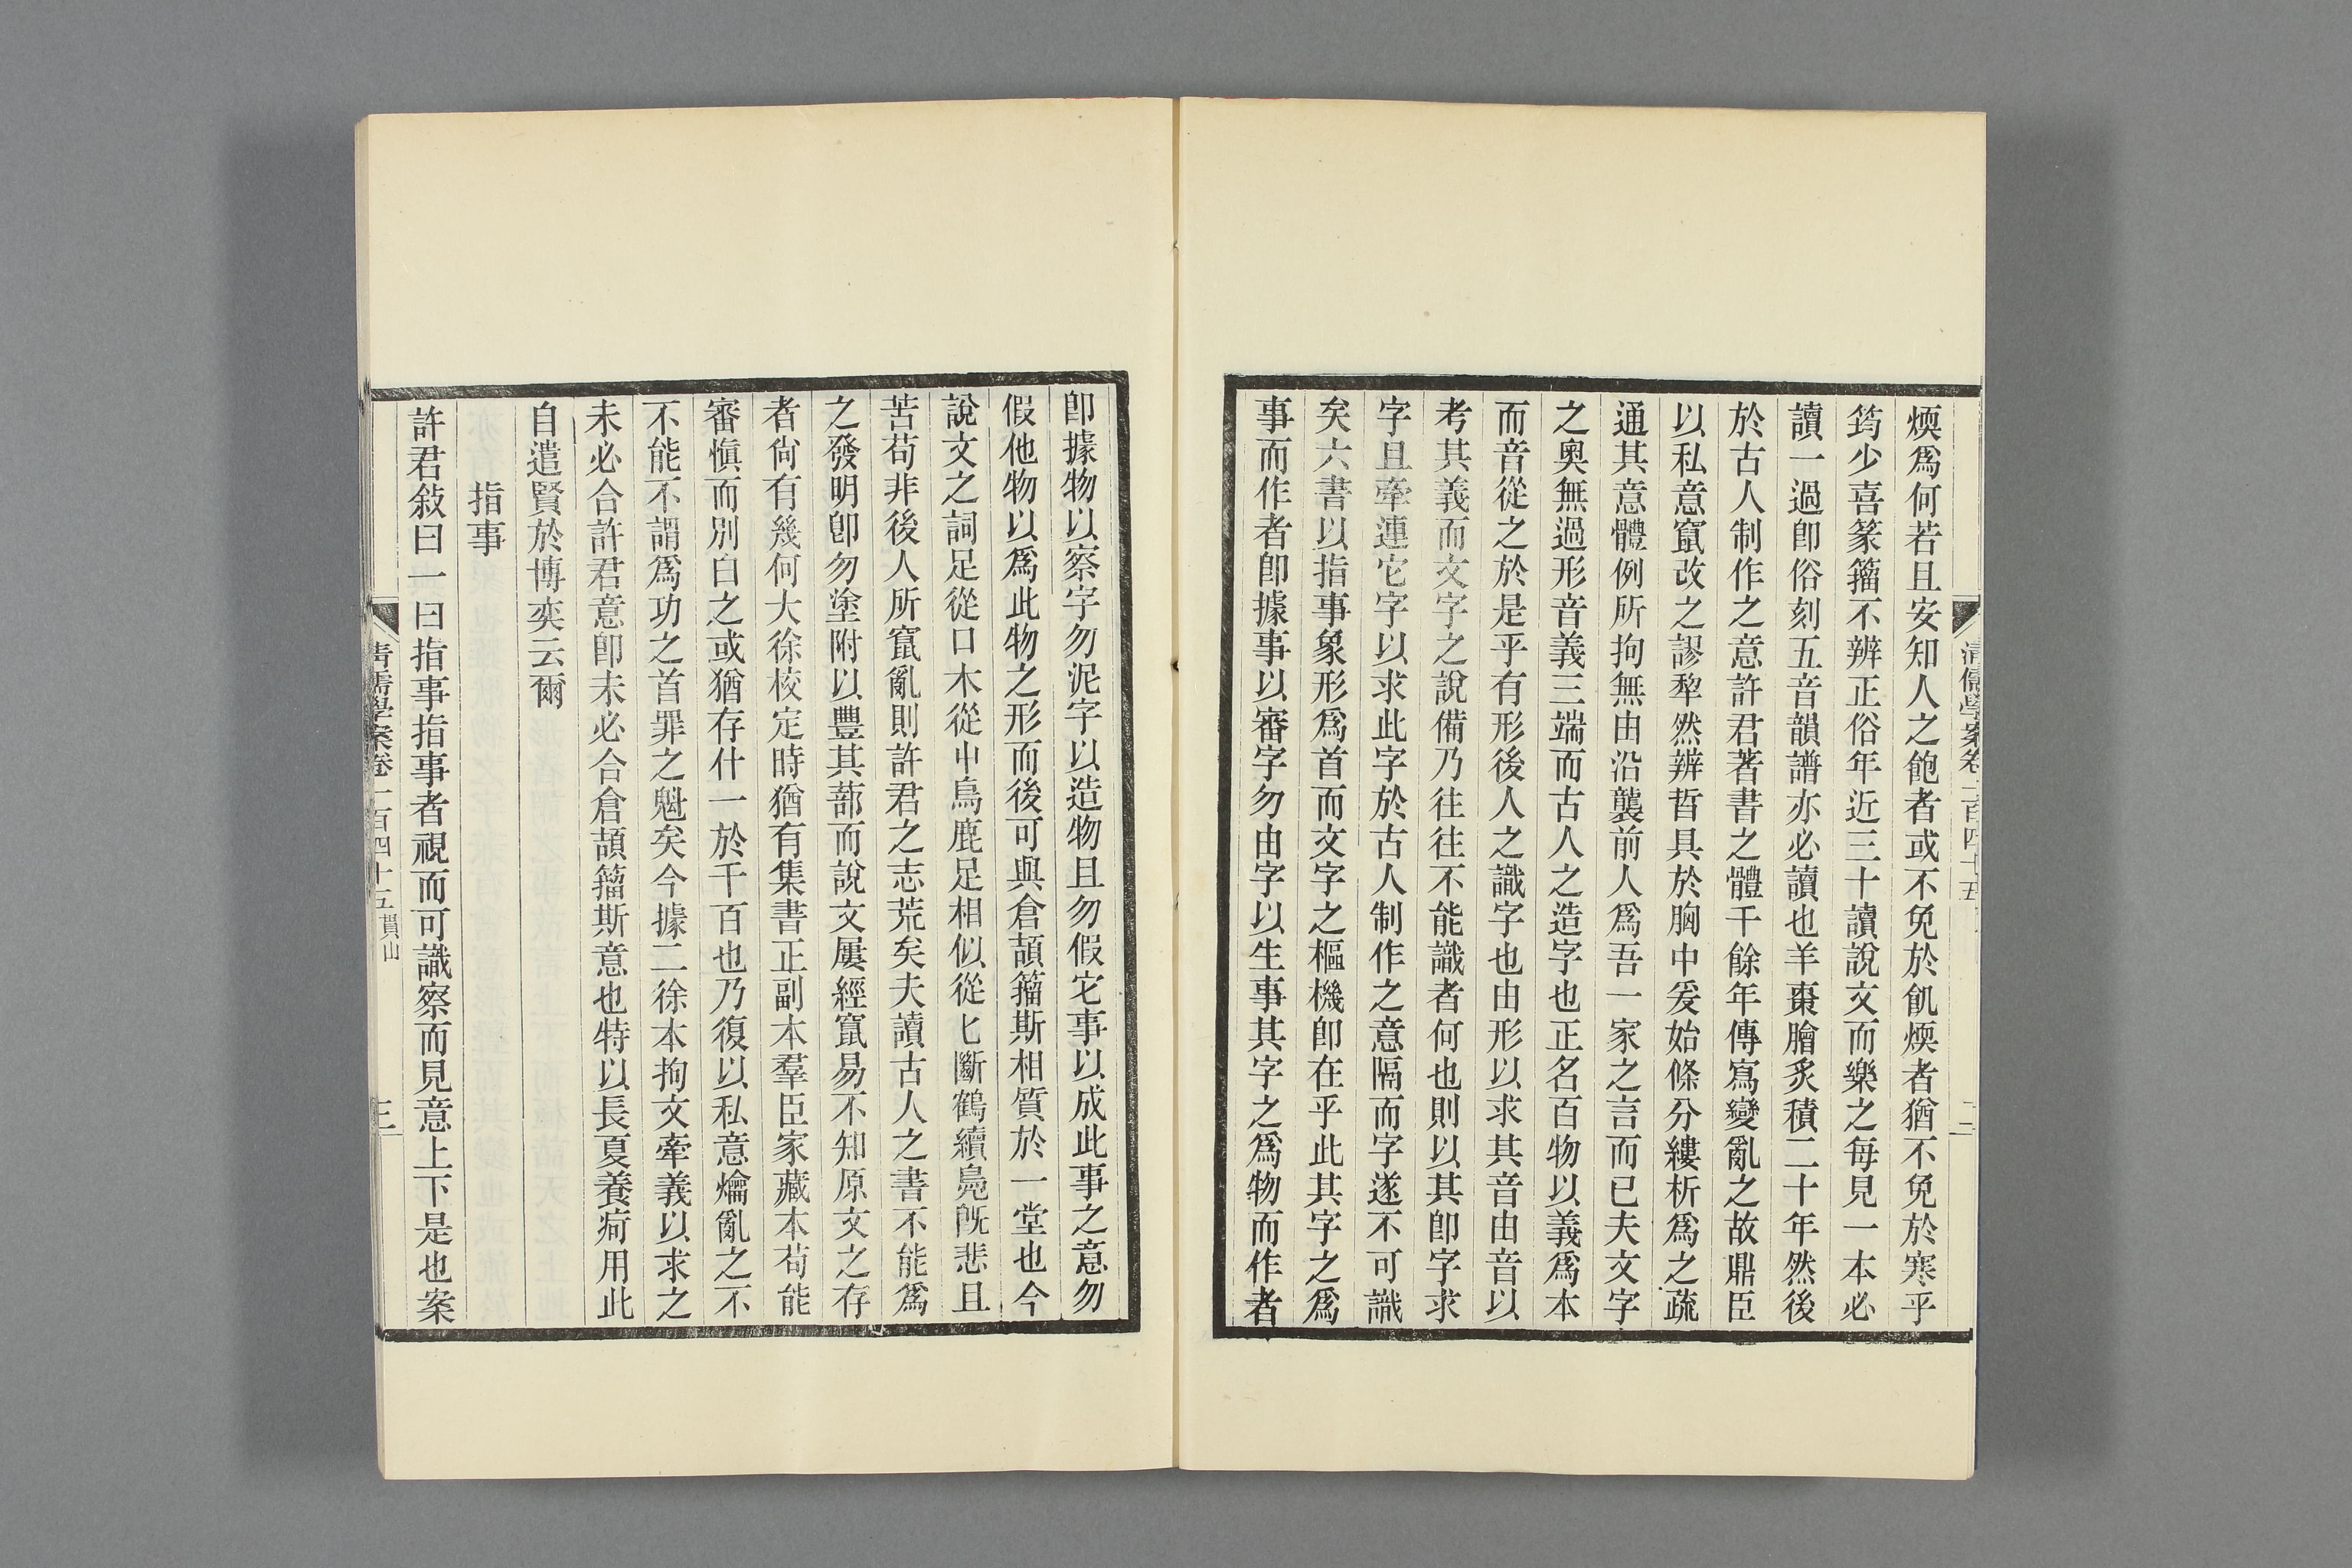 清儒學案卷一百四十五
二
煗爲何若且安知人之飽者或不免於飢煗者猶不免於寒乎
筠少喜篆籀不辨正俗年近三十讀說文而樂之每見一本必
讀一過卽俗刻五音韻譜亦必讀也羊棗膾炙積二十年然後
於古人制作之意許君著書之體千餘年傳寫變亂之故鼎臣
以私意竄改之謬犂然辨晳具於胸中爰始條分縷析爲之疏
通其意體例所拘無由沿襲前人爲吾一家之言而已夫文字
之奧無過形音義三端而古人之造字也正名百物以義爲本
而音從之於是乎有形後人之識字也由形以求其音由音以
考其義而文字之說備乃往往不能識者何也則以其卽字求
字且牽連它字以求此字於古人制作之意隔而字遂不可識
矣六書以指事象形爲首而文字之樞機卽在乎此其字之爲
事而作者卽據事以審字勿由字以生事其字之爲物而作者
卽據物以察字勿泥字以造物且勿假它事以成此事之意勿
假他物以爲此物之形而後可與倉頡籀斯相質於一堂也今
說文之詞足從口木從屮鳥鹿足相似從匕斷鶴續鳧旣悲且
苦苟非後人所竄亂則許君之志荒矣夫讀古人之書不能爲
之發明卽勿塗附以豐其蔀而說文屢經竄易不知原文之存
者尙有幾何大徐校定時猶有集書正副本羣臣家藏本苟能
審愼而別白之或猶存什一於千百也乃復以私意爚亂之不
不能不謂爲功之首罪之魁矣今據二徐本拘文牽義以求之
未必合許君意卽未必合倉頡籀斯意也特以長夏養痾用此
自遣賢於博奕云爾
指事
許君敍曰一曰指事指事者視而可識察而見意上下是也案
清儒學案卷一百四十五貫山
三